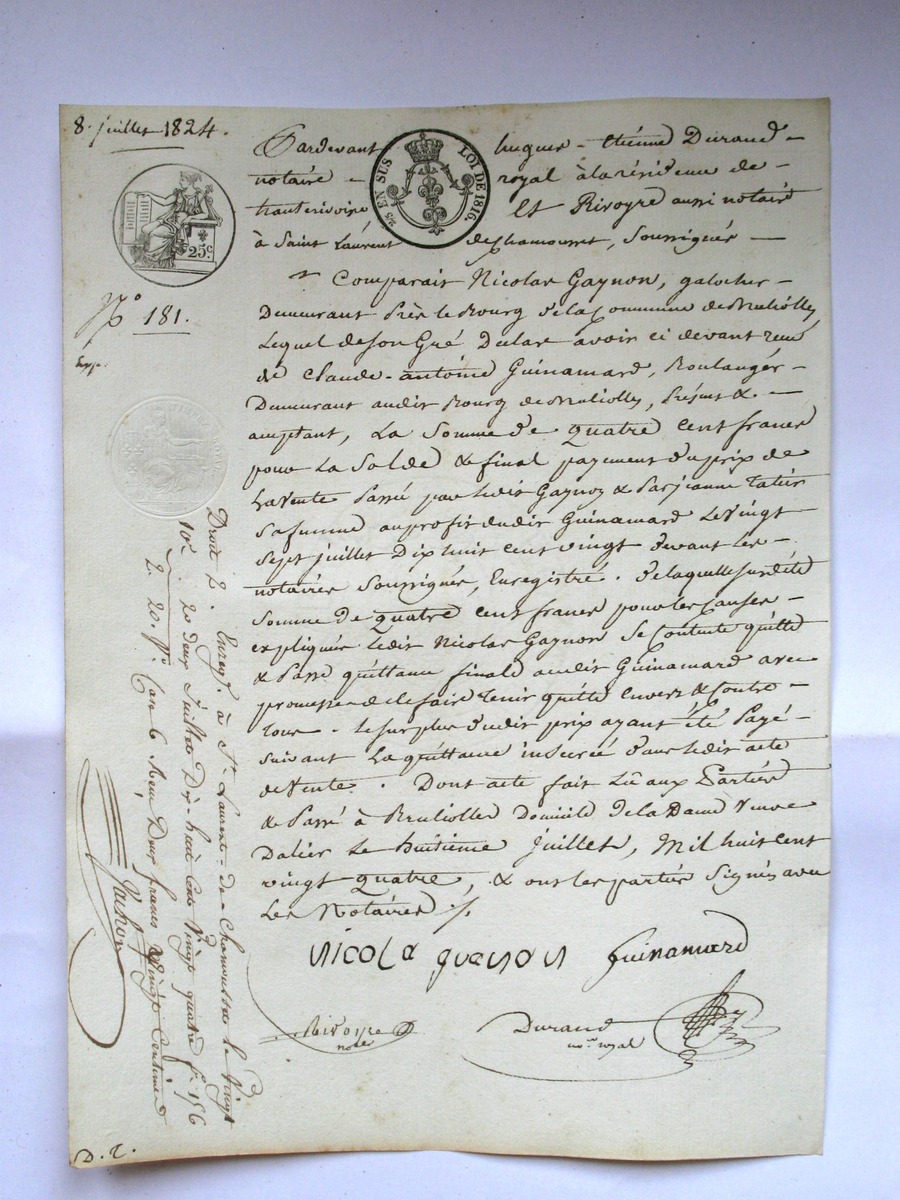 8. juillet 1824.
Pardevant hugues - étienne Durand -
notaire - royal à la résidence de -
hauterivoire Et Rivoyre aussi notaire
à Saint Laurent de chamousset, Soussignés —
EN SUS LOI DE 1816.
25c.
N° 181.
Comparait Nicolas Gaynon, galocher -
Demeurant Près le Bourg de la Commune de Bruliolles,
Lequel de son Gré Déclare avoir ci devant reçu
de Claude-antoine Guinamard, Boulanger -
Demeurant au dit Bourg de Bruliolles, Présent & -
acceptant, La Somme de quatre cent francs
pour La Solde & final payement du prix de
La Vente Passée par ledit Gaynon & Par jeanne
Sa femme au profit dudit Guinamard Le Vingt
Sept juillet Dix huit cent vingt devant les -
notaires Soussignés, Enregistré. de laquelle susdite
Somme de quatre cent francs pour les causes -
expliquées ledit Nicolas Gaynon Se Contente quitte
& Passe quittance finale audit Guinamard avec
promesse de le faire Tenir quitte envers & Contre -
Tous. Le surplus dudit prix ayant été Payé -
Suivant La quittance inserée dans ledit acte
de Vente. Dont acte fait Lû aux Parties
& Passé à Bruliolles Domicile de la Dame Veuve
Dalier Le huitieme juillet, Mil huit cent
vingt quatre, & ont les parties Signés avec
Les Notaires ./.
Nicola guenon Guinamard
Rivoyre
note
Durand
nre royal
Enregé. à St. Laurent-de Chamousset le Vingt
Droit 2. 20 deux Juillet Dix-huit Cent Vingt quatre f° 156
10e. . 20 Case 6 Reçu Deux francs Vingt Centimes
2. 20
D. 2.